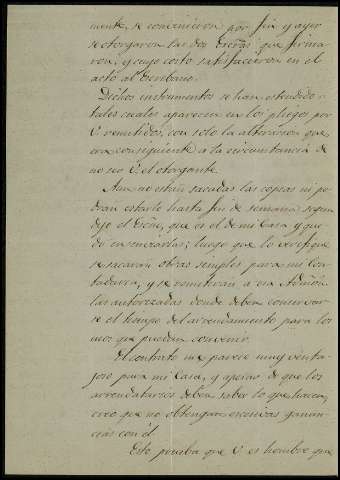 mente, se convinieron por fin y ayer
se otorgaron las dos Escras que firma-
ron, y cuyo costo satisfacieron en el
acto al Escribano.
Dichos instrumentos se han estendido
tales cuales aparecen en los pliegos por
V. remitidos, con solo la alteracion que
era consiguiente a la circunstancia de
no ser V. el otorgante.
Aun no están sacadas las copias ni po-
dran estarlo hasta fin de semana segun
dijo el Escño, que es el de mi Casa y que-
dó en enviarlas; luego que lo verifique
se sacarán otras simples para mi Con-
taduria, y se remitirán a esa Admón
las autorizadas donde deben conservar-
se el tiempo del arrendamiento para los
usos que puedan convenir.
El contrato me parece muy venta-
joso para mi Casa, y apesar de que los
arrendatarios deben saber lo que hacen,
creo que no obtengan escesivas ganan-
cias con él.
Esto prueba que V. es hombre que